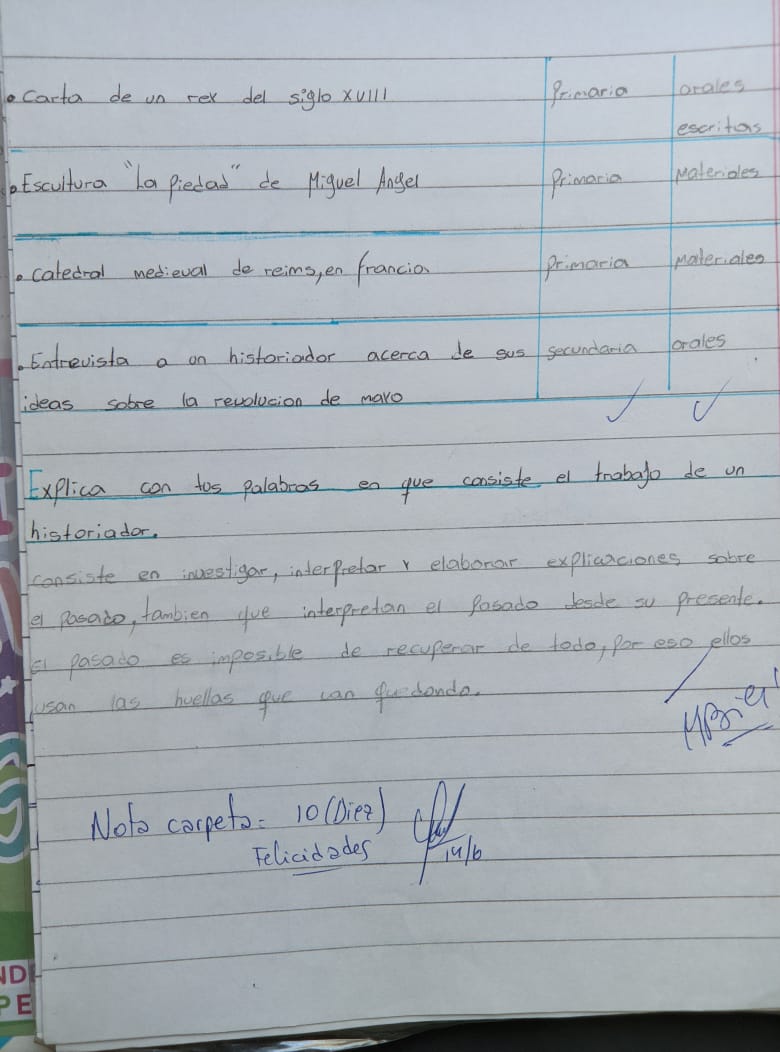 • Carta de un rey del siglo XVIII Primaria orales
escritas
• Escultura "La Piedad" de Miguel Angel Primaria Materiales
• Catedral medieval de reims, en francia Primaria Materiales
• Entrevista a un historiador acerca de sus secundaria orales
ideas sobre la revolucion de mayo
Explica con tus palabras en que consiste el trabajo de un
historiador.
consiste en investigar, interpretar y elaborar explicaciones sobre
el pasado, tambien que interpretan el pasado desde su presente.
El pasado es imposible de recuperar de todo, por eso ellos
usan las huellas que van quedando.
Nota carpeta = 10 (Diez)
Felicidades 14/6
ND
PE